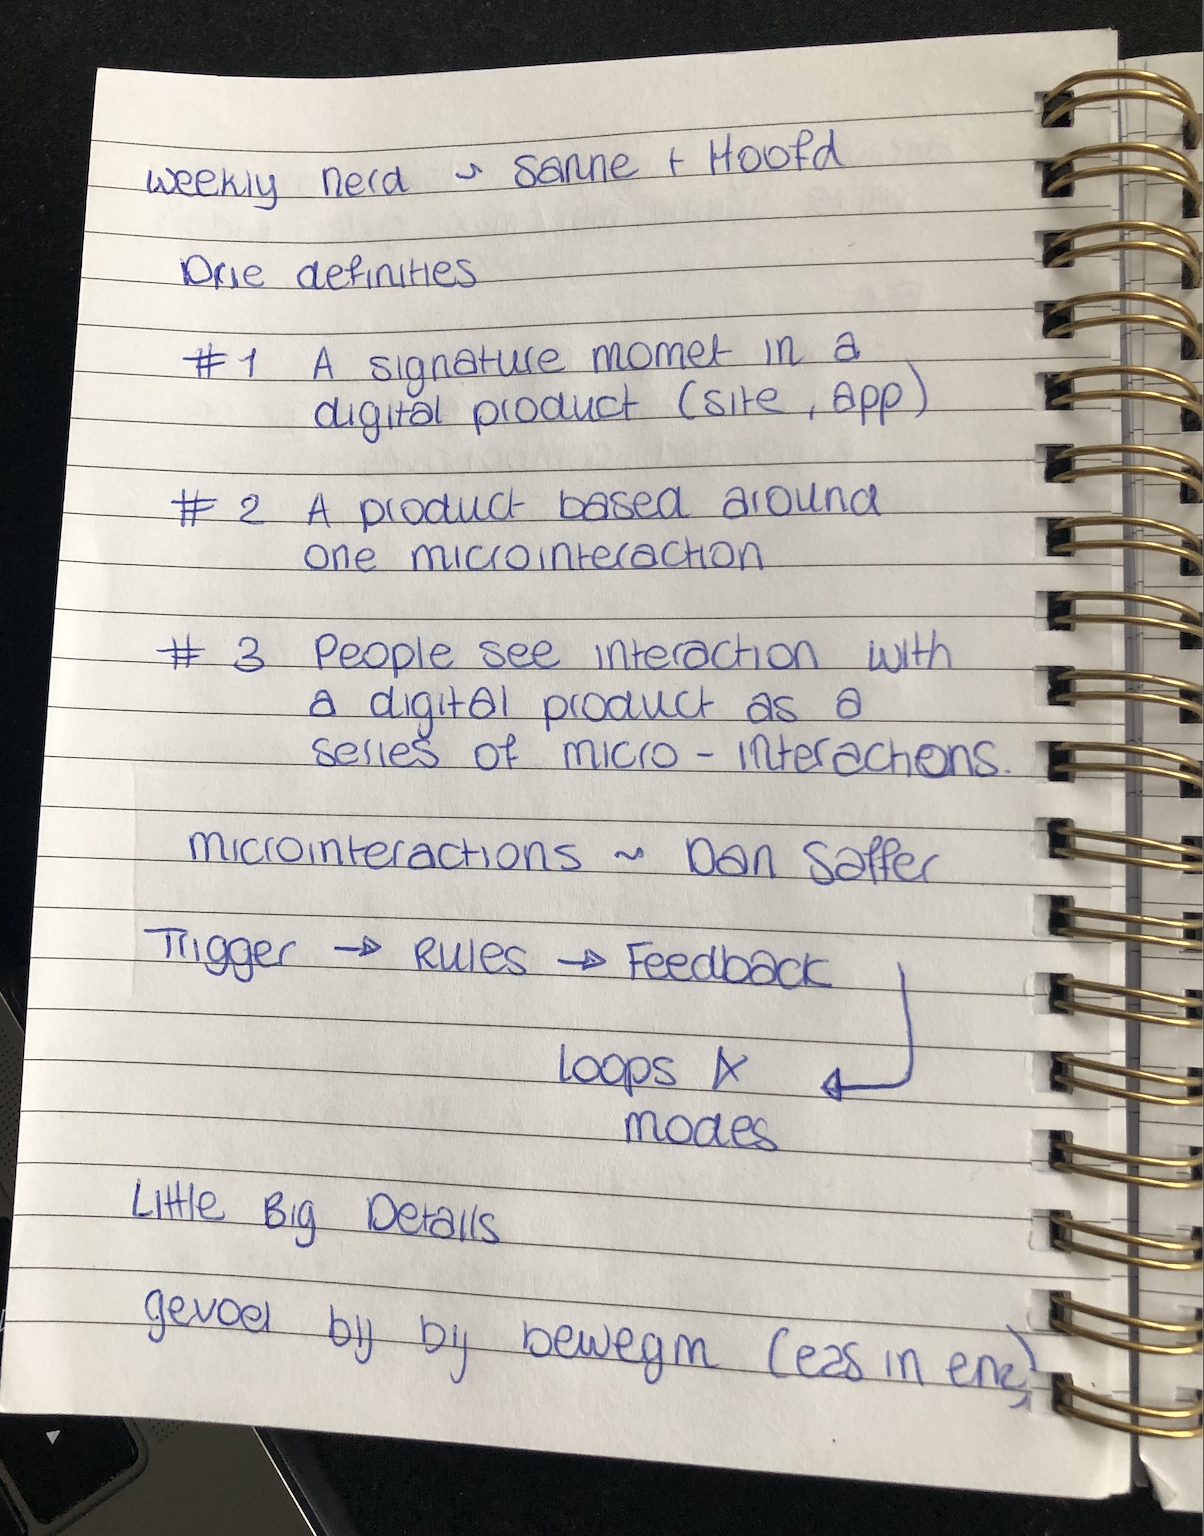 weekly nerd ~ Sanne + Hoofd
Drie definities
#1 A signature momet in a
digital product (site, app)
#2 A product based around
one microinteraction
#3 People see interaction with
a digital product as a
series of micro-interactions.
microinteractions ~ Dan Saffer
Trigger → Rules → Feedback
Loops &
modes
Little Big Details
gevoel bij bij (eas in enz)